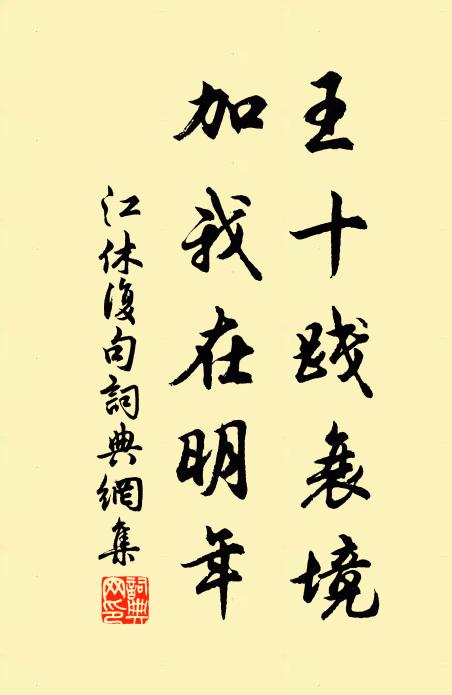 五十踐衰境
加我在明年
江休復句詞典網集
詞典网印